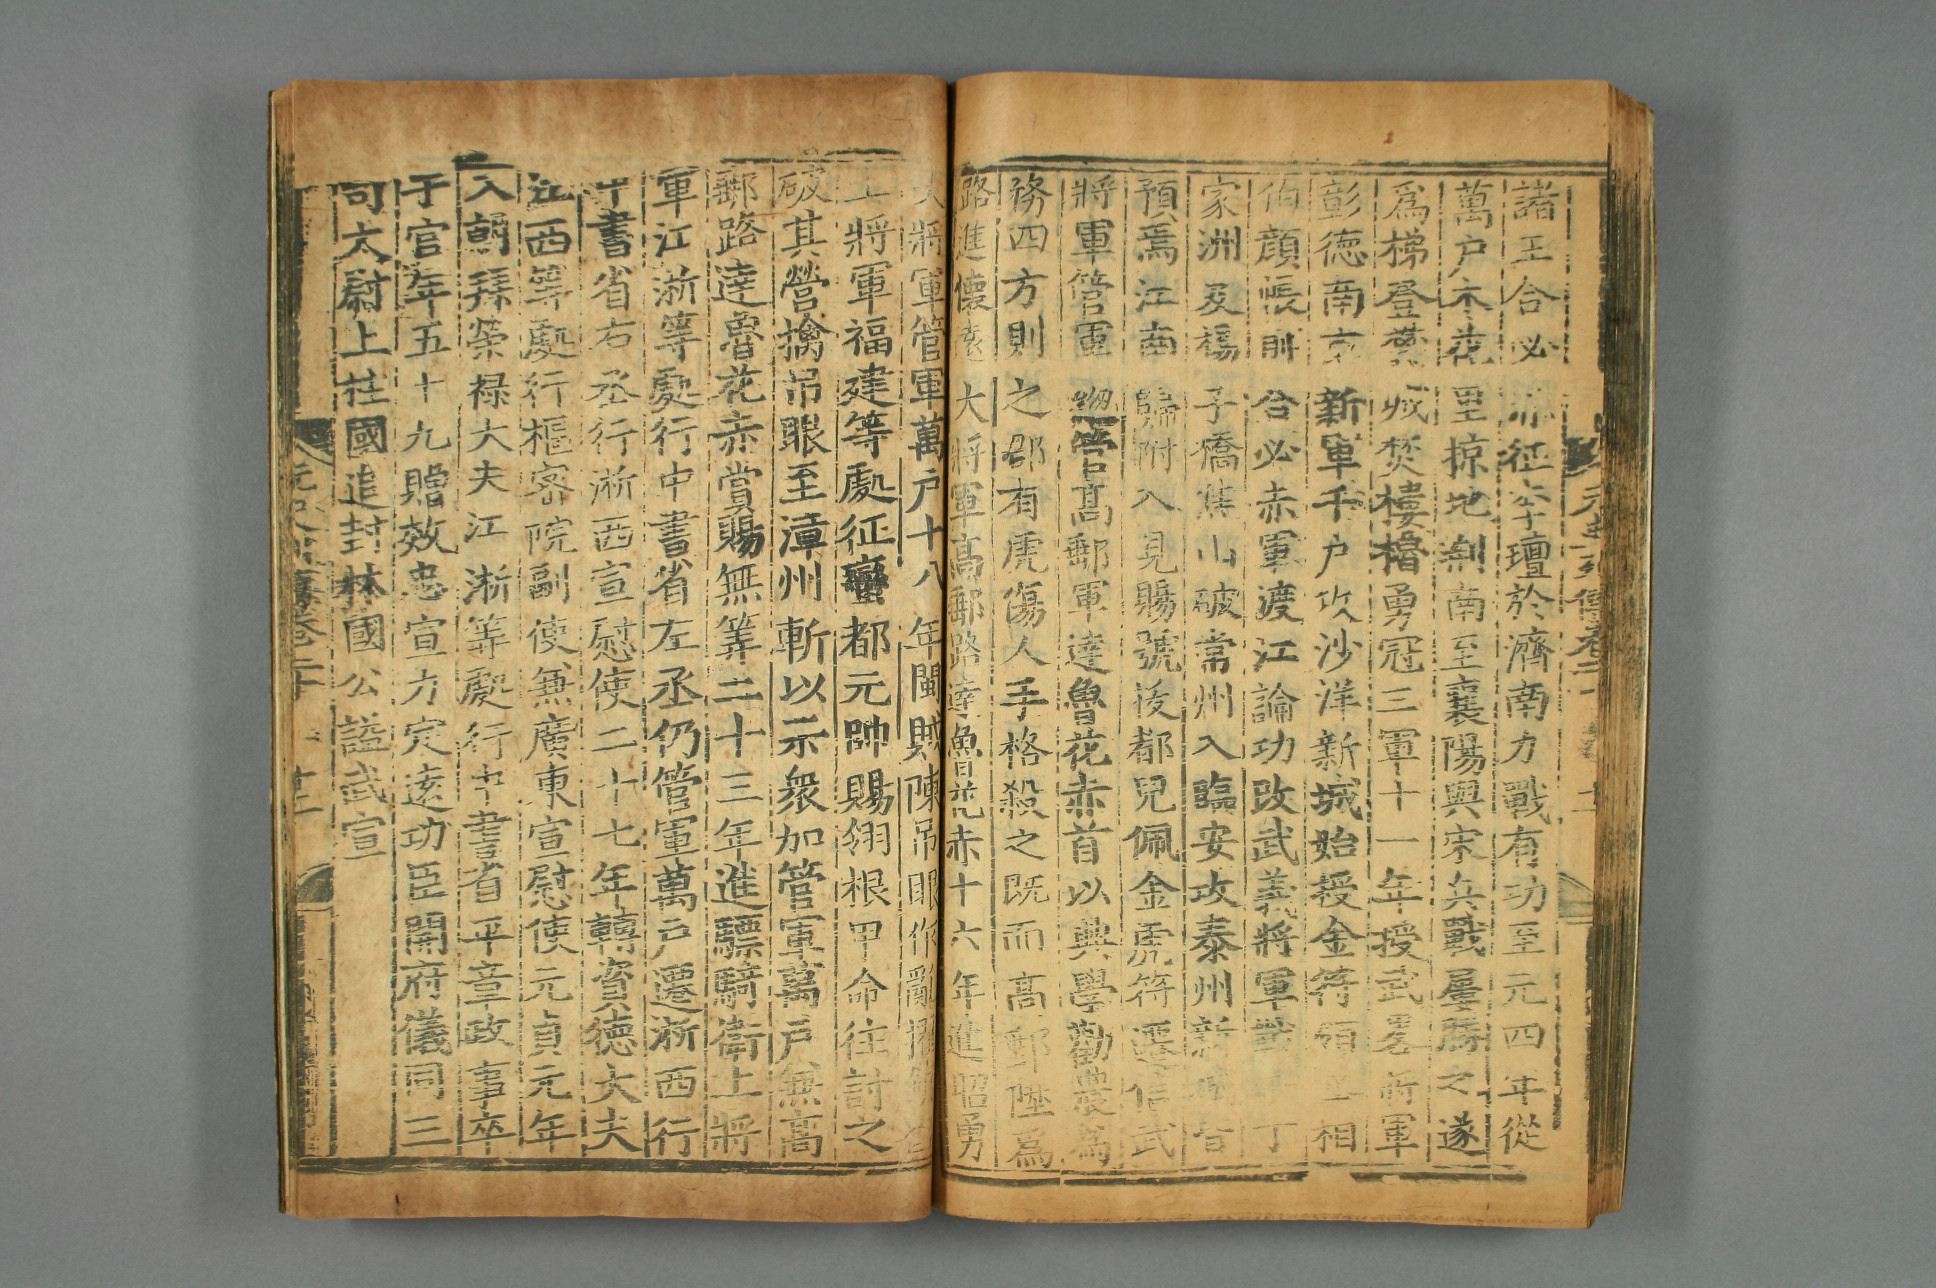 諸王合必赤征李璮於濟南力戰有功至元四年從
萬户木花里掠地荊南至襄陽與宋兵戰屢勝之遂
爲梯登樊城焚樓櫓勇冠三軍十一年授武畧將軍
彰德南京新軍千户攻沙洋新城始授金符領丞相
伯顔帳前合必赤軍渡江論功改武義將軍戰丁
家洲及楊子橋焦山破常州入臨安攻泰州新城皆
預焉江南歸附入見賜號拔都兒佩金虎符遷信武
將軍管軍緫管高郵軍達魯花赤首以興學勸農爲
務四方則之郡有虎傷人手格殺之既而高郵陞爲
路進懷遠大將軍高郵路達魯花赤十六年進昭勇
大將軍管軍萬户十八年閩賊陳吊眼作亂擢
上將軍福建等處征蠻都元帥賜翎根甲命往討之
破其營擒吊眼至漳州斬以示衆加管軍萬户無高
郵路達魯花赤賞賜無筭二十三年進驃騎衛上將
軍江浙等處行中書省左丞仍管軍萬户遷浙西行
中書省右丞行浙西宣慰使二十七年轉資德大夫
江西等處行樞密院副使無廣東宣慰使元貞元年
入朝拜榮禄大夫江浙等處行中書省平章政事卒
于官年五十九贈效忠宣力定遠功臣開府儀同三
司太尉上柱國追封林國公謚武宣